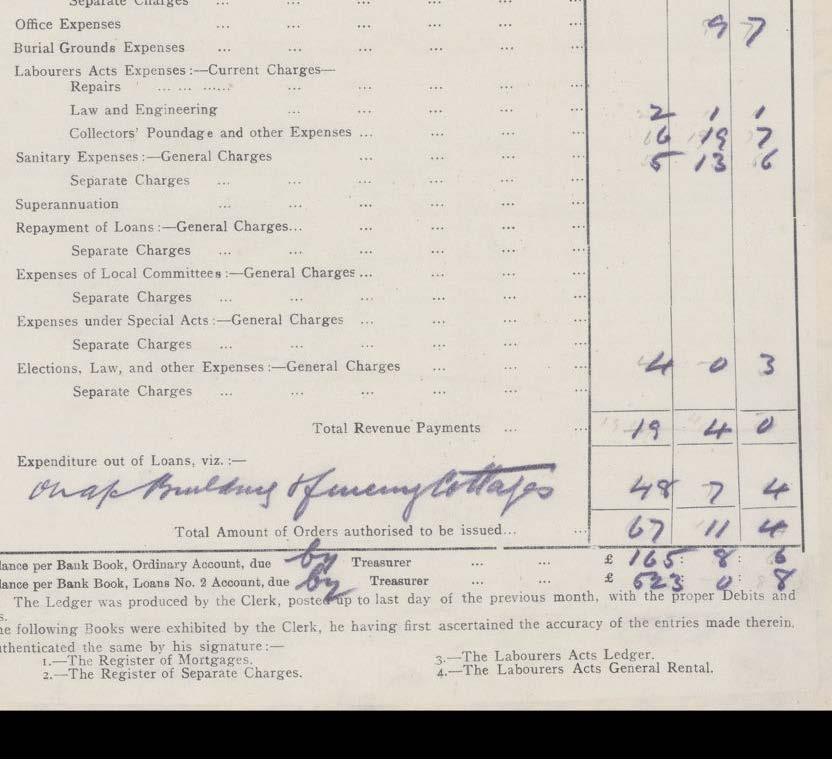 Separate Charges ... ... ... ... ...
Office Expenses ... ... ... ... ... 9 7
Burial Grounds Expenses ... ... ... ... ...
Labourers Acts Expenses :—Current Charges—
Repairs ... ... ...... ... ... ... ... ...
Law and Engineering ... ... ... ... ... 2 1 1
Collectors' Poundage and other Expenses ... ... ... ... 6 19 7
Sanitary Expenses :—General Charges ... ... ... ... 5 13 6
Separate Charges ... ... ... ... ... ...
Superannuation ... ... ... ... ...
Repayment of Loans :—General Charges... ... ... ... ...
Separate Charges ... ... ... ... ... ...
Expenses of Local Committees :—General Charges ... ... ... ...
Separate Charges ... ... ... ... ... ...
Expenses under Special Acts :—General Charges ... ... ... ...
Separate Charges ... ... ... ... ... ...
Elections, Law, and other Expenses :—General Charges ... ... ... 4 0 3
Separate Charges ... ... ... ... ... ...
Total Revenue Payments ... ... 19 4 0
Expenditure out of Loans, viz. :—
Building Cottages 48 7 4
Total Amount of Orders authorised to be issued... ... 67 11 4
lance per Bank Book, Ordinary Account, due by Treasurer ... ... £ 165 : 8 : 6
lance per Bank Book, Loans No. 2 Account, due by Treasurer ... ... £ 623 : 0 : 8
The Ledger was produced by the Clerk, posted up to last day of the previous month, with the proper Debits and
s.
he following Books were exhibited by the Clerk, he having first ascertained the accuracy of the entries made therein,
uthenticated the same by his signature :—
1.—The Register of Mortgages. 3.—The Labourers Acts Ledger.
2.—The Register of Separate Charges. 4.—The Labourers Acts General Rental.